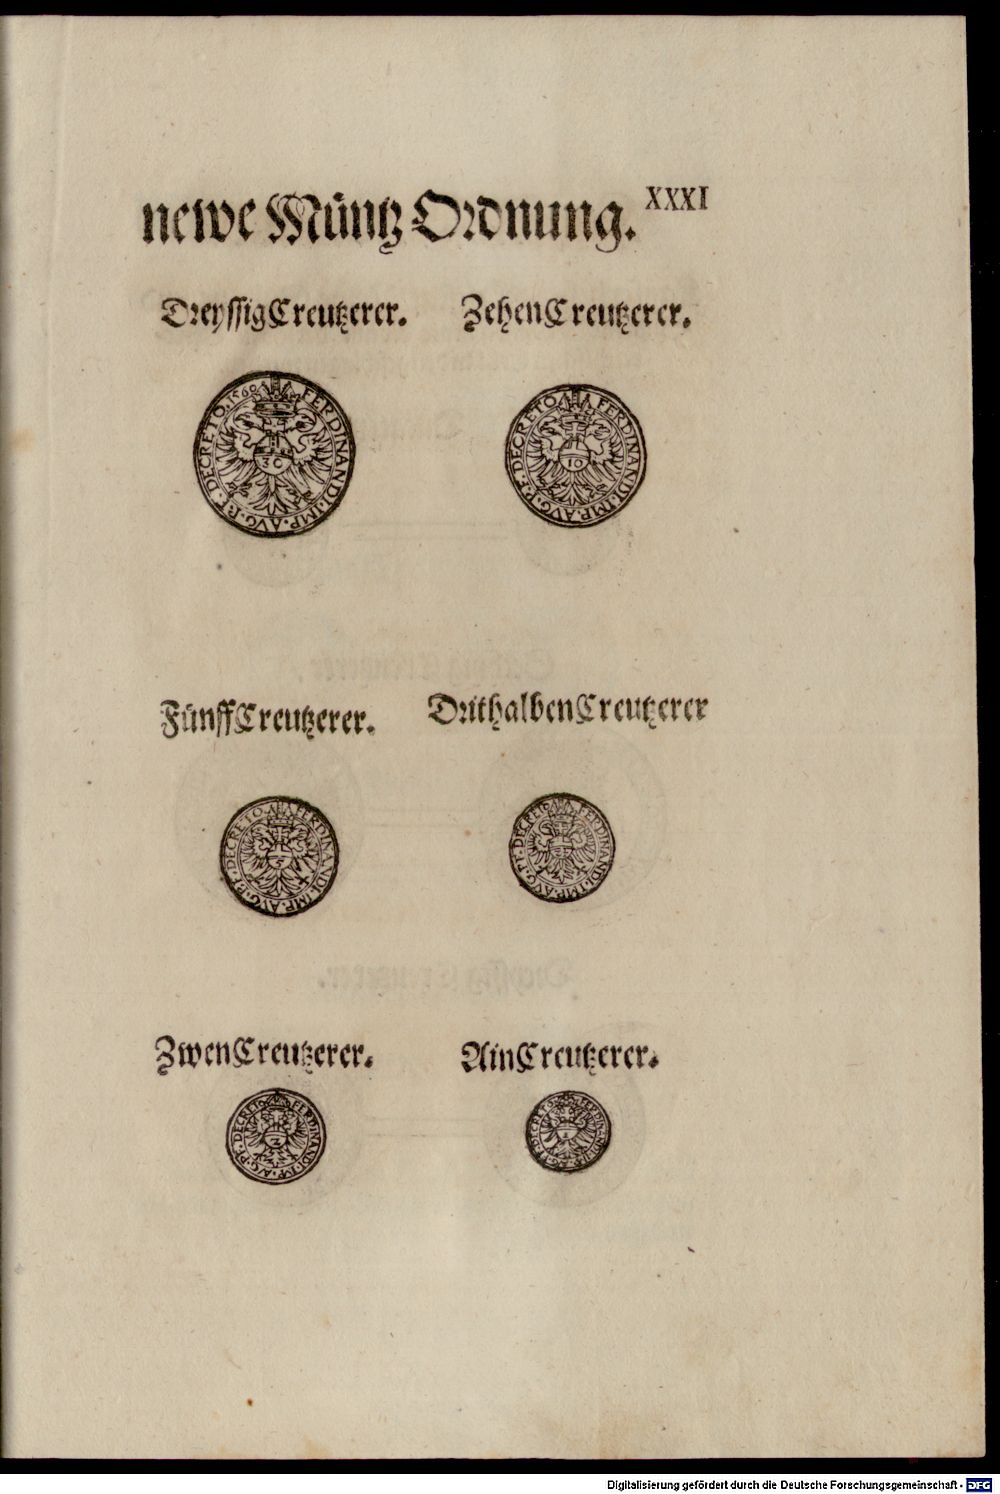 newe Müntz Ordnung. XXXI
Dreyssig Creutzerer. Zehen Creutzerer.
FERDINANDI·IMP·AVG·P·F·DECRETO·1560
30
FERDINANDI·IMP·AVG·P·F·DECRETO
10
Fünff Creutzerer. Drithalben Creutzerer
FERDINANDI·IMP·AVG·P·F·DECRETO
5
FERDINANDI·IMP·AVG·P·F·DECRETO
Zwen Creutzerer. Ain Creutzerer.
FERDINANDI·IMP·AVG·P·F·DECRETO
2
Digitalisierung gefördert durch die Deutsche Forschungsgemeinschaft - DFG